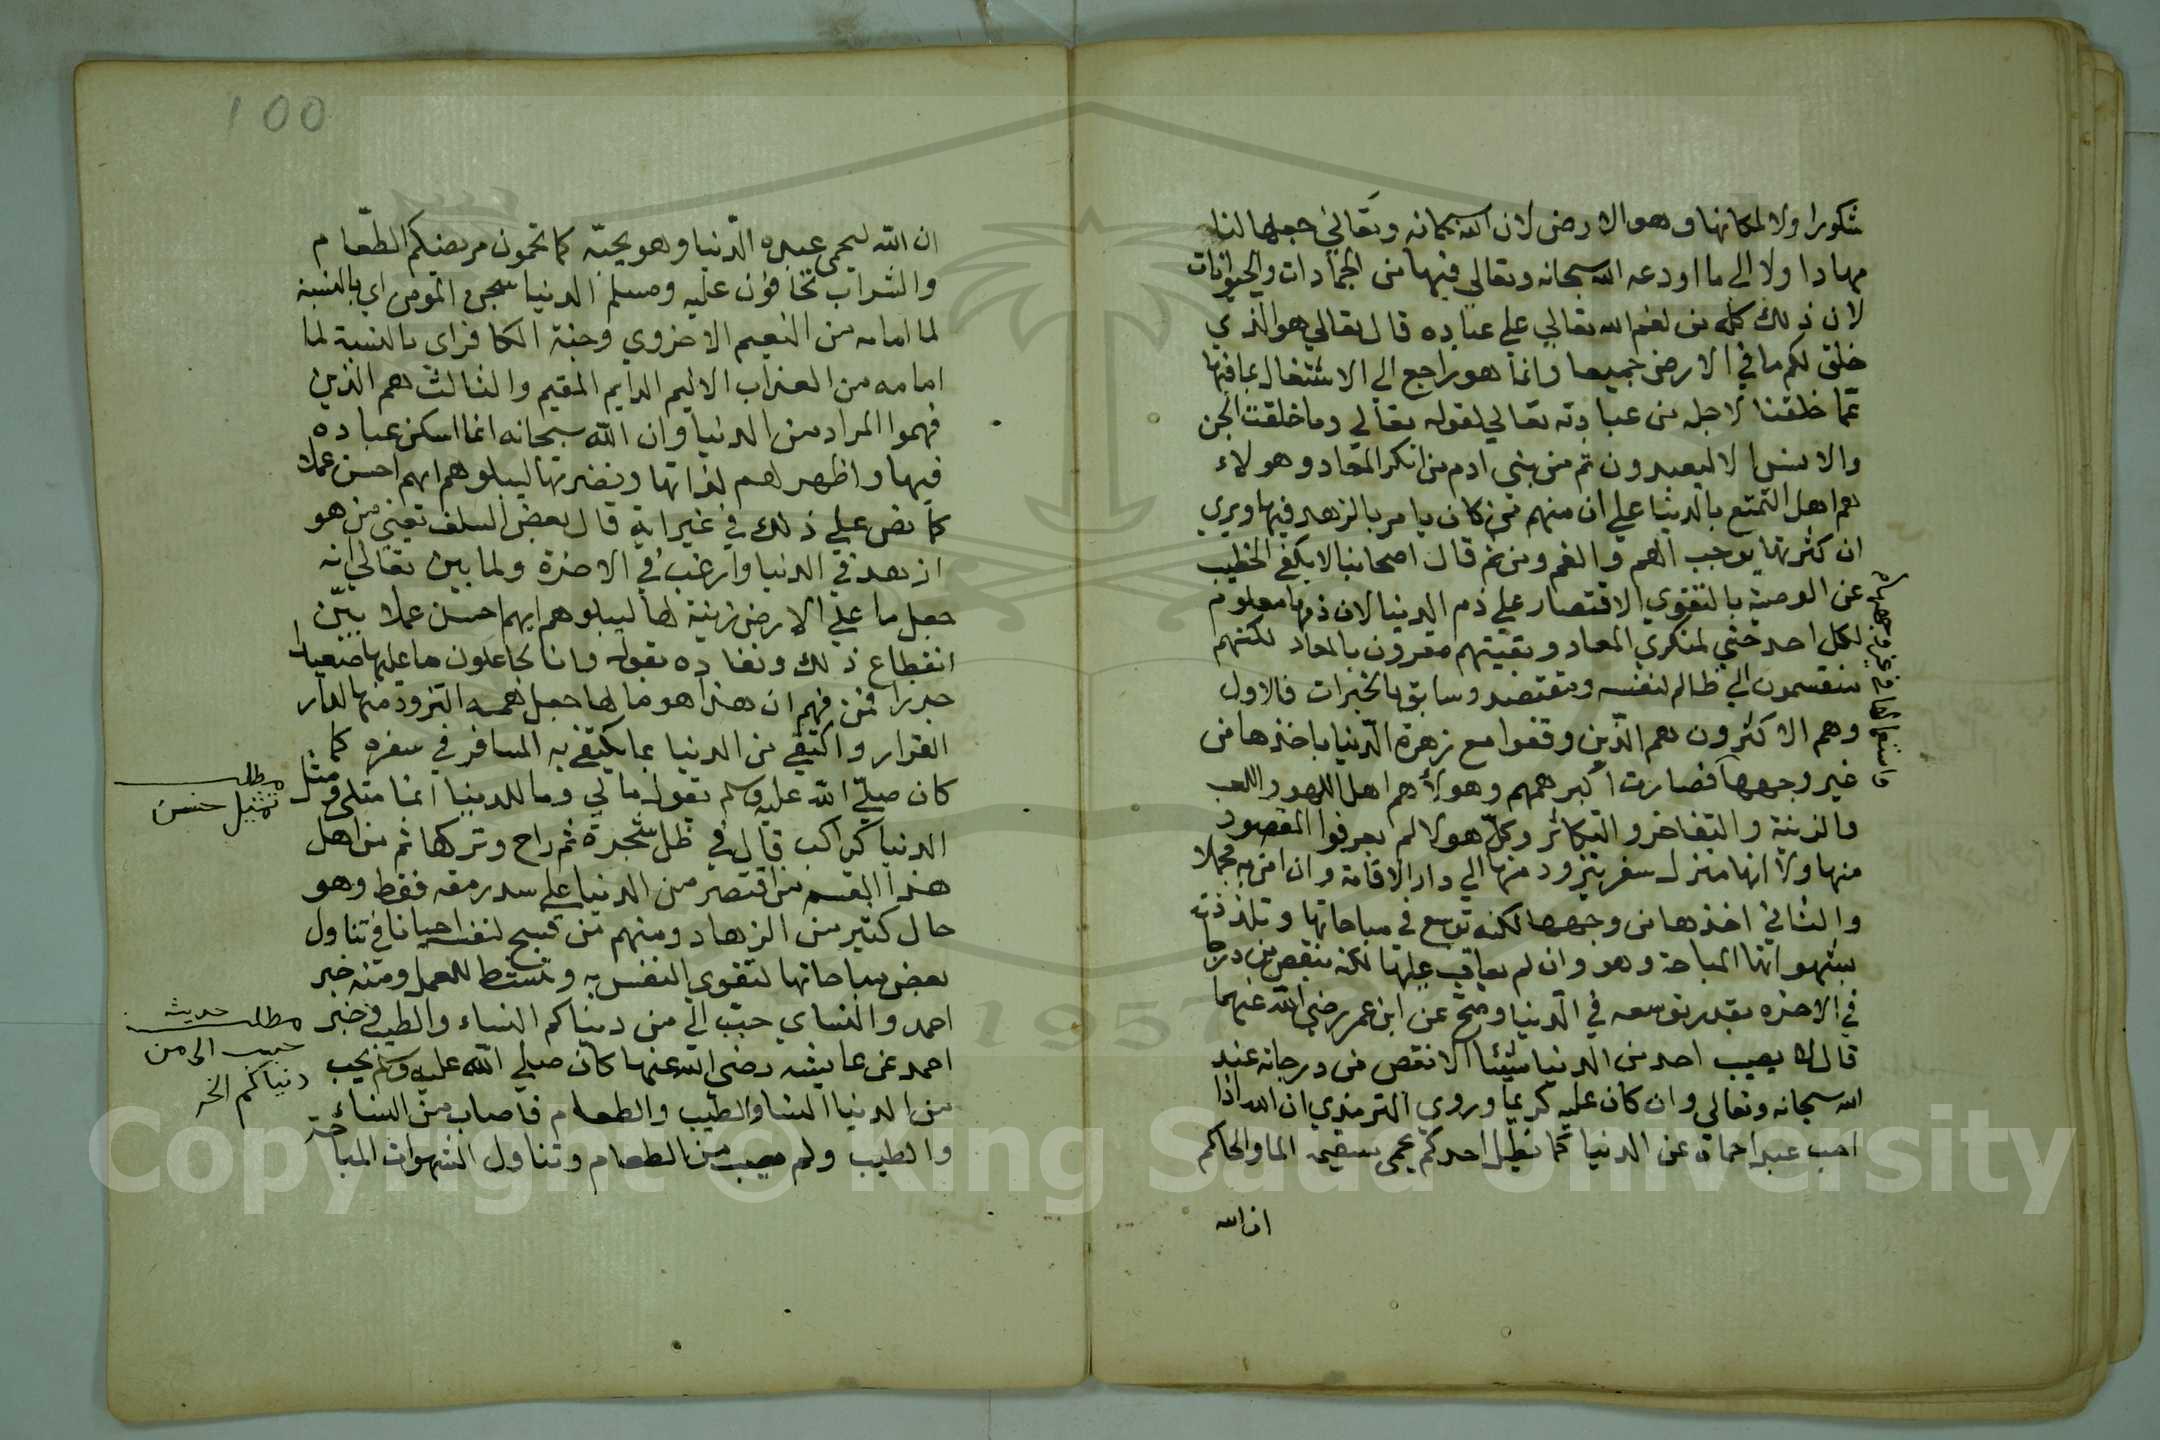 شكورا ولا لمكانها وهو الارض لان الله سبحانه وتعالي جعلها لنا
مهادا ولا الي ما اودعه الله سبحانه وتعالي فيها من الجمادات والحيوانات
لان ذلك كله من نعم الله تعالي علي عباده قال تعالي هو الذي
خلق لكم ما في الارض جميعا وانما هو راجع الي الاشتغال بما فيها
عما خلقنا لاجله من عبادته تعالي لقوله تعالي وما خلقت الجن
والانس الا ليعبدون ثم من بني ادم من انكر المعاد وهولاء
هم اهل التمتع بالدنيا علي ان منهم من كان يامر بالزهد فيها ويري
ان كثرتها يوجب الهم والغم ومن ثم قال اصحابنا لا يكفي الخطيب
عن الوصية بالتقوي الاقتصار علي ذم الدنيا لان ذمها معلوم
لكل احد حتي لمنكري المعاد وبقيتهم مقرون بالمعاد لكنهم
منقسمون الي ظالم لنفسه ومقتصد وسابق بالخيرات فالاول
وهم الاكثرون هم الذين وقفوا مع زهرة الدنيا باخذها من
غير وجهها فصارت اكبر همهم وهولاء هم اهل اللهو واللعب
والزينة والتفاخر والتكاثر وكل هولا لم يعرفوا المقصود
منها ولا انها منزل سفر يتزود منها الي دار الاقامة وان امن به مجملا
والثاني اخذها من وجهها لكنه توسع في مباحاتها وتلذذ
بشهواتها المباحة وهو وان لم يعاقب عليها لكنه ينقص من درجاته
في الاخره بقدر توسعه في الدنيا وصح عن ابن عمر رضي الله عنهما
قال لا يصيب احد من الدنيا شيئا الا نقص من درجاته عند
الله سبحانه وتعالي وان كان عليه كريما وروي الترمذي ان الله اذا
احب عبدا حماه عن الدنيا كما يظل احدكم يحمي سقيمه الما والحاكم
ان الله
فاستعملها في غير وجهها
100
ان الله ليحمي عبده الدنيا وهو يحبه كما تحمون مريضكم الطعام
والشراب تخافون عليه ومسلم الدنيا سجن المومن اي بالنسبة
لما امامه من النعيم الاخروي وجنة الكافر اي بالنسبة لما
امامه من العذاب الاليم الدايم المقيم والثالث هم الذين
فهموا المراد من الدنيا وان الله سبحانه انما اسكن عباده
فيها واظهر لهم لذاتها ونضرتها ليبلوهم ايهم احسن عملا
كما نص علي ذلك في غير اية قال بعض السلف يعني من هو
ازهد في الدنيا وارغب في الاخرة ولما بين تعالي انه
جعل ما علي الارض زينة لها ليبلوهم ايهم احسن عملا بين
انقطاع ذلك ونفاده بقوله وانا لجاعلون ما عليها صعيدا
جرزا فمن فهم ان هذا هو مالها جعل همه التزود منها لدار
القرار واكتفي من الدنيا بما يكتفي به المسافر في سفره كما
كان صلي الله عليه وسلم يقول مالي وما للدنيا انما مثلي ومثل
الدنيا كراكب قال في ظل شجرة ثم راح وتركها ثم من اهل
هذا القسم من اقتصر من الدنيا علي سد رمقه فقط وهو
حال كثير من الزهاد ومنهم من فسح لنفسه احيانا في تناول
بعض مباحاتها لتقوي النفس به وتنشط للعمل ومنه خبر
احمد والنساي حبب الي من دنياكم النساء والطيب وفي خبر
احمد عن عايشه رضي الله عنها كان صلي الله عليه وسلم يحب
من الدنيا النسا والطيب والطعام فاصاب من النساء
والطيب ولم يصب من الطعام وتناول الشهوات المباحة
مطلب
تمثيل حسن
مطلب حديث
حبب الي من
دنياكم الخ
1957
Copyright © King Saud University